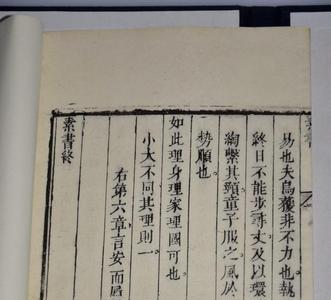 易也夫烏獲非不力也執
終日不能步尋丈及以環
綯繫其頸童子服之風於
勢順也
如此理身理家理國可也
小大不同其理則一
右第六章言安而履
素書終